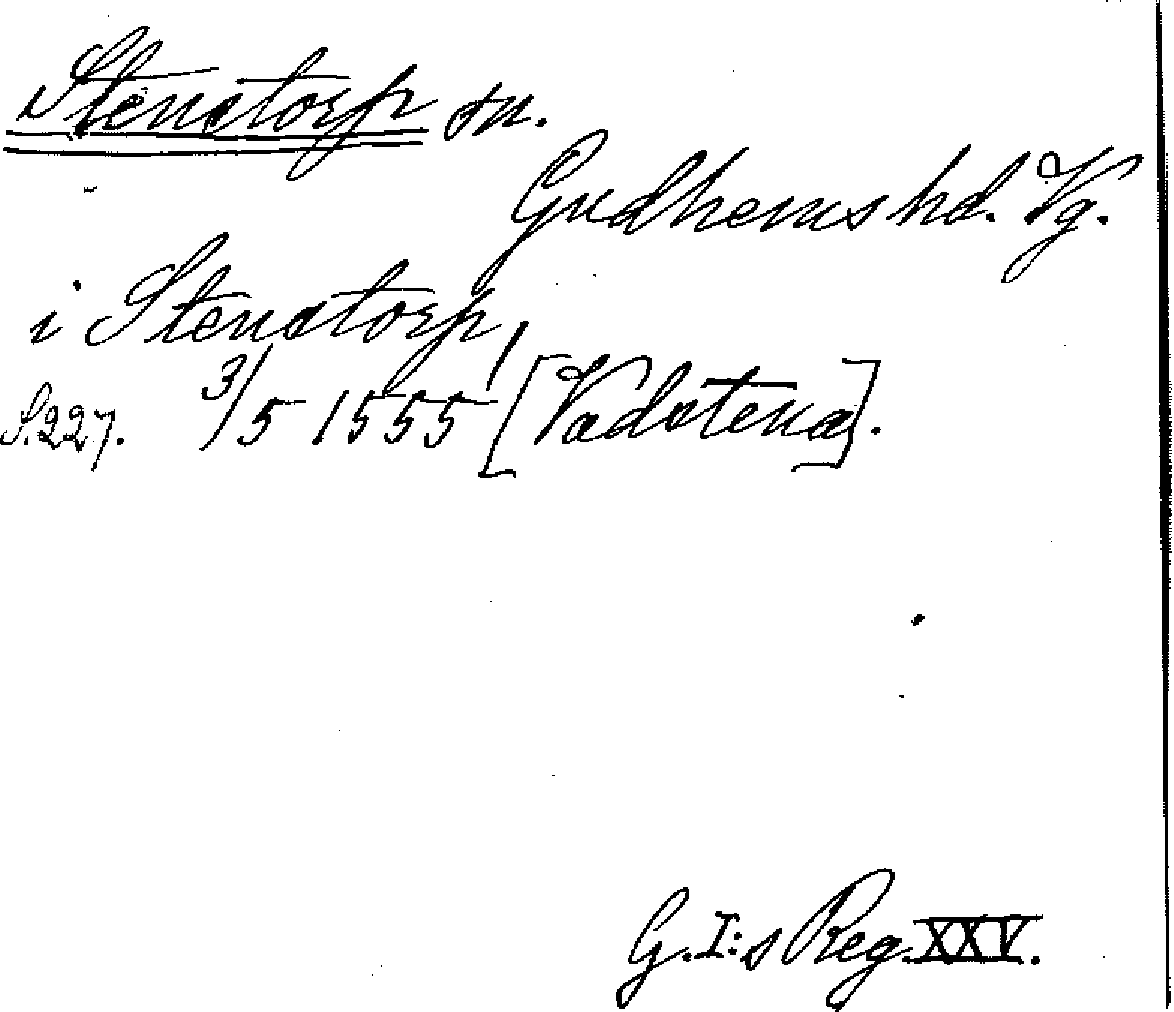 Stenstorp sn.
Gudhems hd. Vg.
i Stenstorp,
S. 227. 3/5 1555 [Vadstena].
G. I:s Reg. XXV.